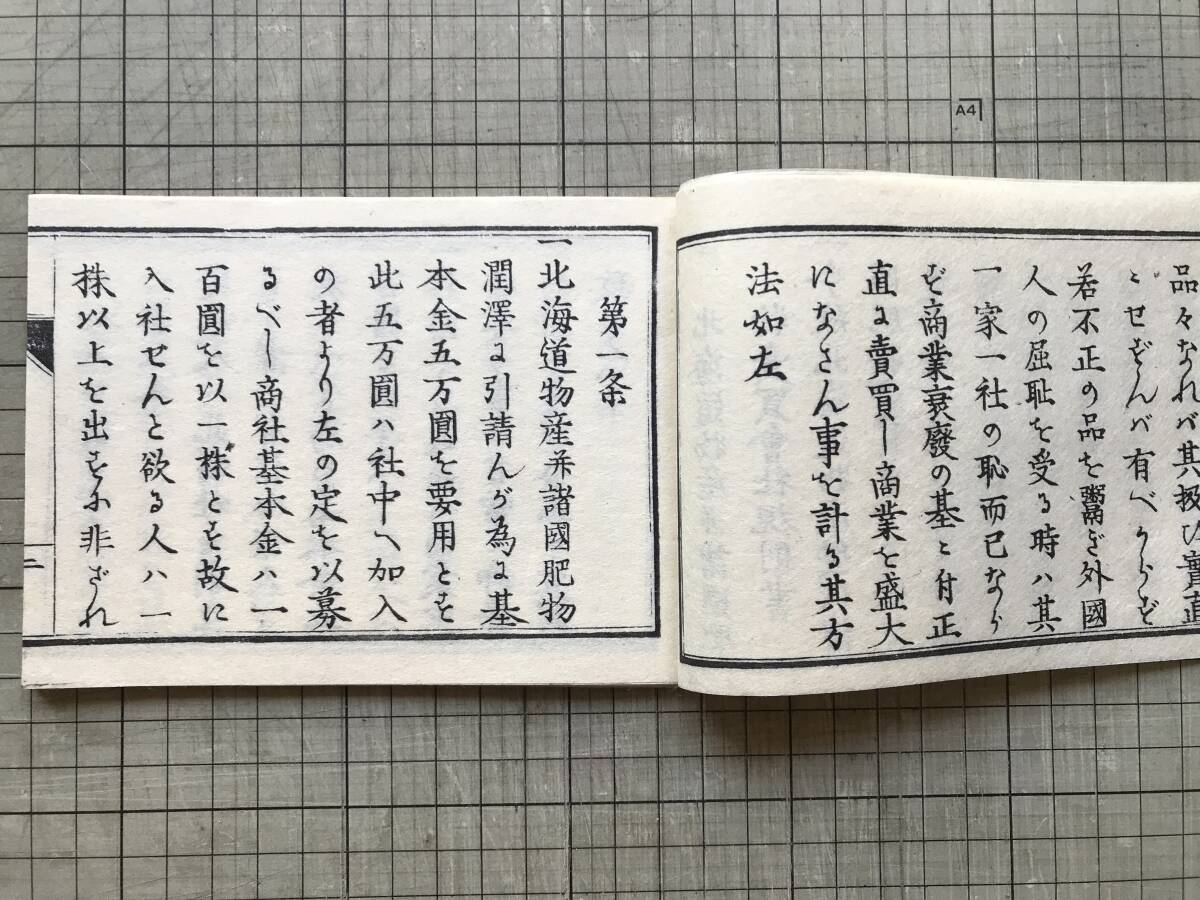 品々なれバ其扱ひ實直
とせずんバ有べからず
若不正の品を鬻ぎ外國
人の屈耻を受る時ハ其
一家一社の恥而已なら
ず商業衰廢の基と付正
直に賣買し商業を盛大
になさん事を計る其方
法如左
第一条
一北海道物産并諸國肥物
潤澤に引請んが為に基
本金五万圓を要用とす
此五万圓ハ社中へ加入
の者より左の定を以募
るべし商社基本金ハ一
百圓を以一株とす故に
入社せんと欲る人ハ一
株以上を出すに非ざれ
二
A4